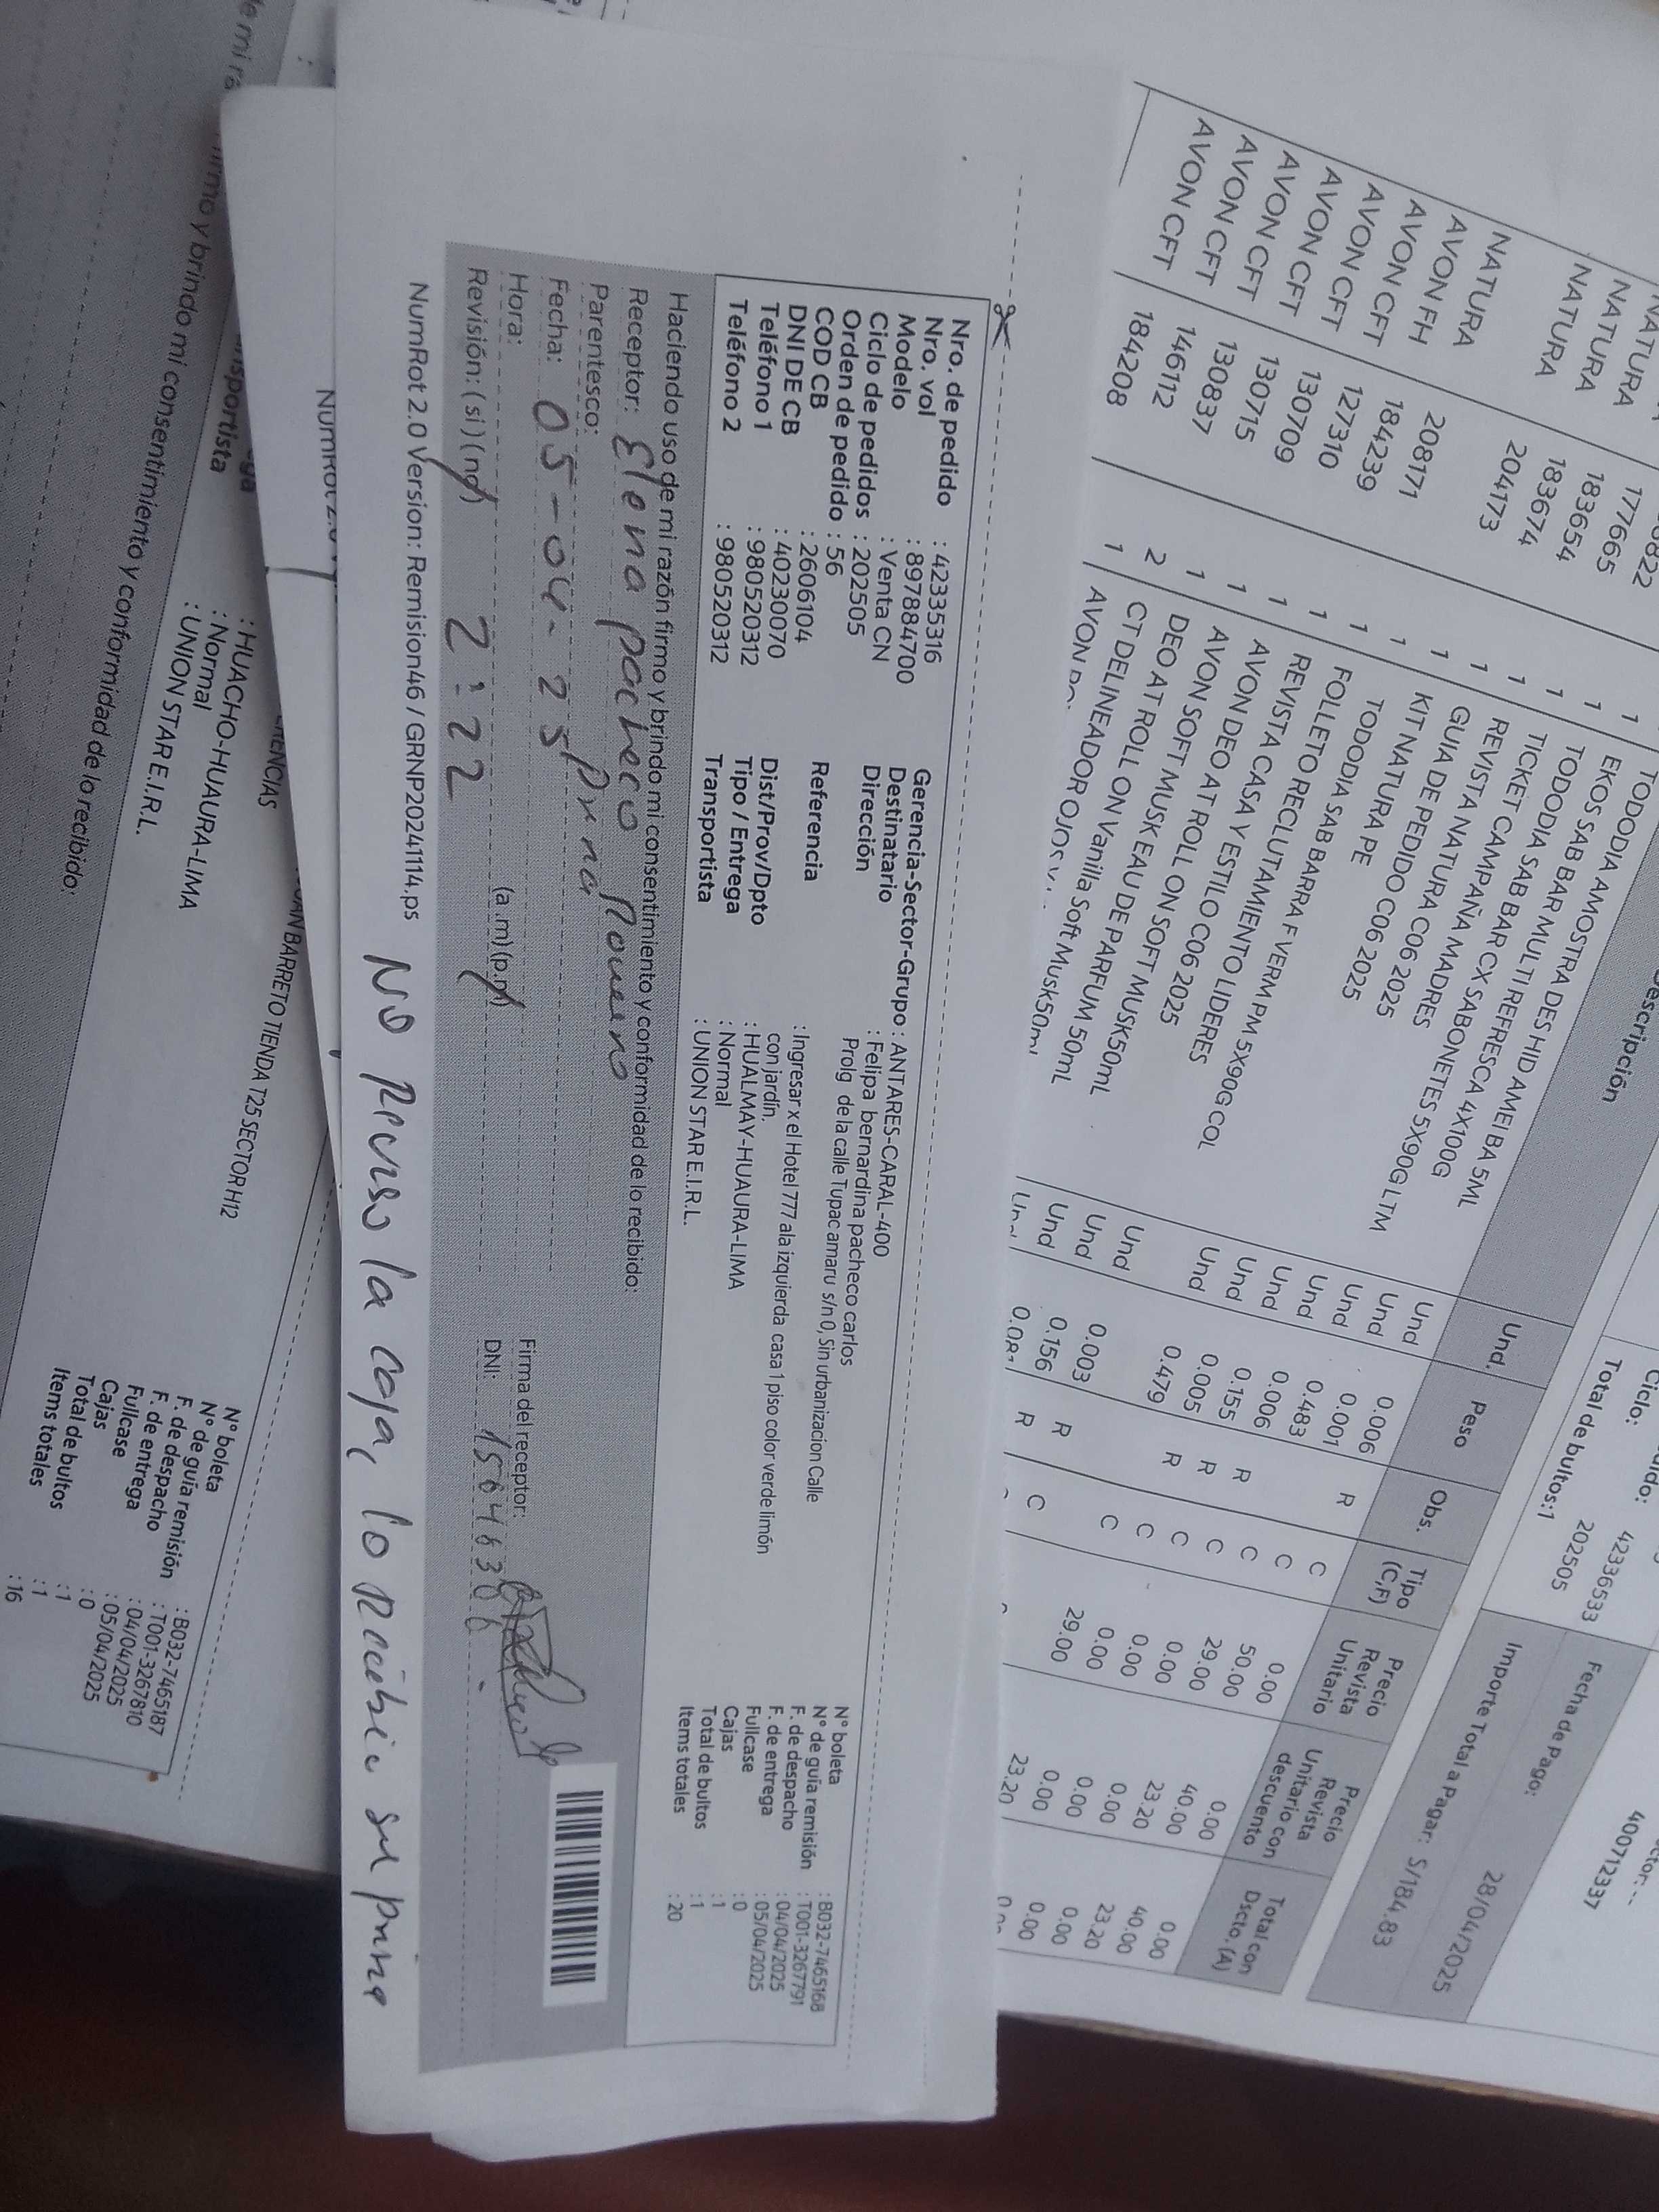 Ciclo: 202505
42336533
400712337
Total de bultos:1
Fecha de Pago: 28/04/2025
Importe Total a Pagar: S/184.83
Descripción
Und.
Peso
Obs.
Tipo (C,F)
Precio Revista Unitario
Precio Revista Unitario con descuento
Total con Dscto. (A)
NATURA
NATURA 177665
NATURA 183654
NATURA 183674
NATURA 204173
AVON FH 208171
AVON CFT 184239
AVON CFT 127310
AVON CFT 130709
AVON CFT 130715
AVON CFT 130837
AVON CFT 146112
184208
1 TODODIA AMOSTRA DES HID AMEI BA 5ML
1 EKOS SAB BAR MULTI REFRESCA 4X100G
1 TODODIA SAB BAR CX SABONETES 5X90G LTM
1 TICKET CAMPAÑA MADRES
1 REVISTA NATURA C06 2025
1 GUIA DE PEDIDO C06 2025
1 KIT NATURA PE
1 TODODIA SAB BARRA F VERM PM 5X90G COL
1 FOLLETO RECLUTAMIENTO LIDERES
1 REVISTA CASA Y ESTILO C06 2025
1 AVON DEO AT ROLL ON SOFT MUSK50mL
1 AVON SOFT MUSK EAU DE PARFUM 50mL
2 DEO AT ROLL ON Vanilla Soft Musk50mL
1 CT DELINEADOR OJOS
AVON
Und 0.006
Und 0.001 R C 0.00 0.00 0.00
Und 0.483 C 50.00 40.00 40.00
Und 0.006 R C 29.00 23.20 23.20
Und 0.155 R C 0.00 0.00 0.00
Und 0.005 R C 0.00 0.00 0.00
Und 0.479 C 0.00 0.00 0.00
Und 0.003 C 29.00 23.20
Und 0.156 R C
Und R
Nro. de pedido : 42335316
Nro. vol : 8978884700
Modelo : Venta CN
Ciclo de pedidos : 202505
Orden de pedido : 56
COD CB : 2606104
DNI DE CB : 40230070
Teléfono 1 : 980520312
Teléfono 2 : 980520312
Gerencia-Sector-Grupo : ANTARES-CARAL-400
Destinatario : Felipa bernardina pacheco carlos
Dirección Prolg de la calle Tupac amaru s/n 0, Sin urbanizacion Calle
Referencia : Ingresar x el Hotel 777 ala izquierda casa 1 piso color verde limón
con jardín,
Dist/Prov/Dpto : HUALMAY-HUAURA-LIMA
Tipo / Entrega : Normal
Transportista : UNION STAR E.I.R.L.
N° boleta : B032-7465168
N° de guía remisión : T001-3267791
F. de despacho : 04/04/2025
F. de entrega : 05/04/2025
Fullcase : 0
Cajas : 1
Total de bultos : 1
Items totales : 20
Haciendo uso de mi razón firmo y brindo mi consentimiento y conformidad de lo recibido:
Receptor: Elena pacheco Romero
Parentesco: prna
Fecha: 05-04-25
Hora: 2:22 (a.m)(p.m)
Revisión: (si)(no)
Firma del receptor:
DNI: 15646306
NumRot 2.0 Version: Remision46 / GRNP20241114.ps
No Reviso la caja, lo Recibio su prima
JUAN BARRETO TIENDA T25 SECTOR H12
: HUACHO-HUAURA-LIMA
: Normal
Transportista : UNION STAR E.I.R.L.
N° boleta : B032-7465187
N° de guía remisión : T001-3267810
F. de despacho : 04/04/2025
F. de entrega : 05/04/2025
Fullcase : 0
Cajas : 1
Total de bultos : 1
Items totales : 16
firmo y brindo mi consentimiento y conformidad de lo recibido: